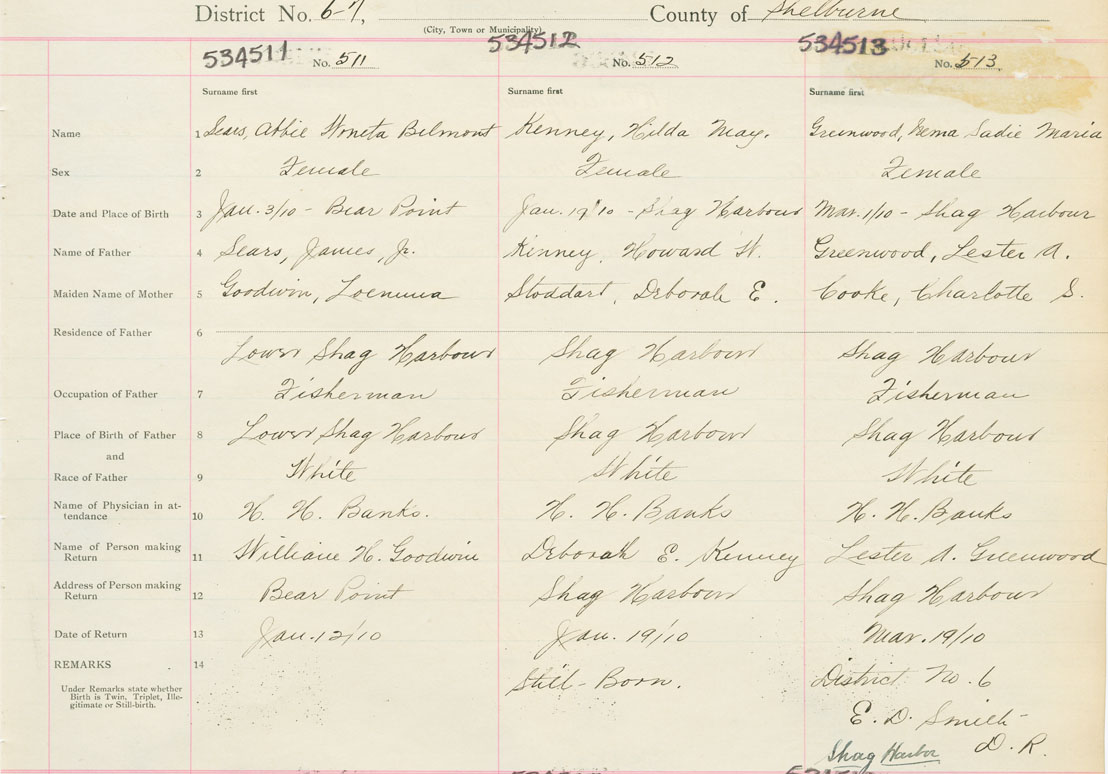 District No. 6-7, County of Shelburne
(City, Town or Municipality)
534511 534512 534513
No. 511 No. 512 No. 513
Surname first Surname first Surname first
Name 1 Sears, Abbie Woneta Belmont Kenney, Hilda May. Greenwood, Nema Sadie Maria
Sex 2 Female Female Female
Date and Place of Birth 3 Jan. 3/10 - Bear Point Jan. 19/10 - Shag Harbour Mar. 1/10 - Shag Harbour
Name of Father 4 Sears, James, Jr. Kenney, Howard W. Greenwood, Lester A.
Maiden Name of Mother 5 Goodwin, Stoddart, Deborah E. Cooke, Charlotte S.
Residence of Father 6
Lower Shag Harbour Shag Harbour Shag Harbour
Occupation of Father 7 Fisherman Fisherman Fisherman
Place of Birth of Father 8 Lower Shag Harbour Shag Harbour Shag Harbour
and
Race of Father 9 White White White
Name of Physician in at-
tendance 10 H. H. Banks. H. H. Banks H. H. Banks
Name of Person making
Return 11 William H. Goodwin Deborah E. Kenney Lester A. Greenwood
Address of Person making
Return 12 Bear Point Shag Harbour Shag Harbour
Date of Return 13 Jan. 12/10 Jan. 19/10 Mar. 19/10
REMARKS 14 Still-Born. District No. 6
Under Remarks state whether
Birth is Twin, Triplet, Ille-
gitimate or Still-birth.
E. D. Smith
Shag Harbor D. R.